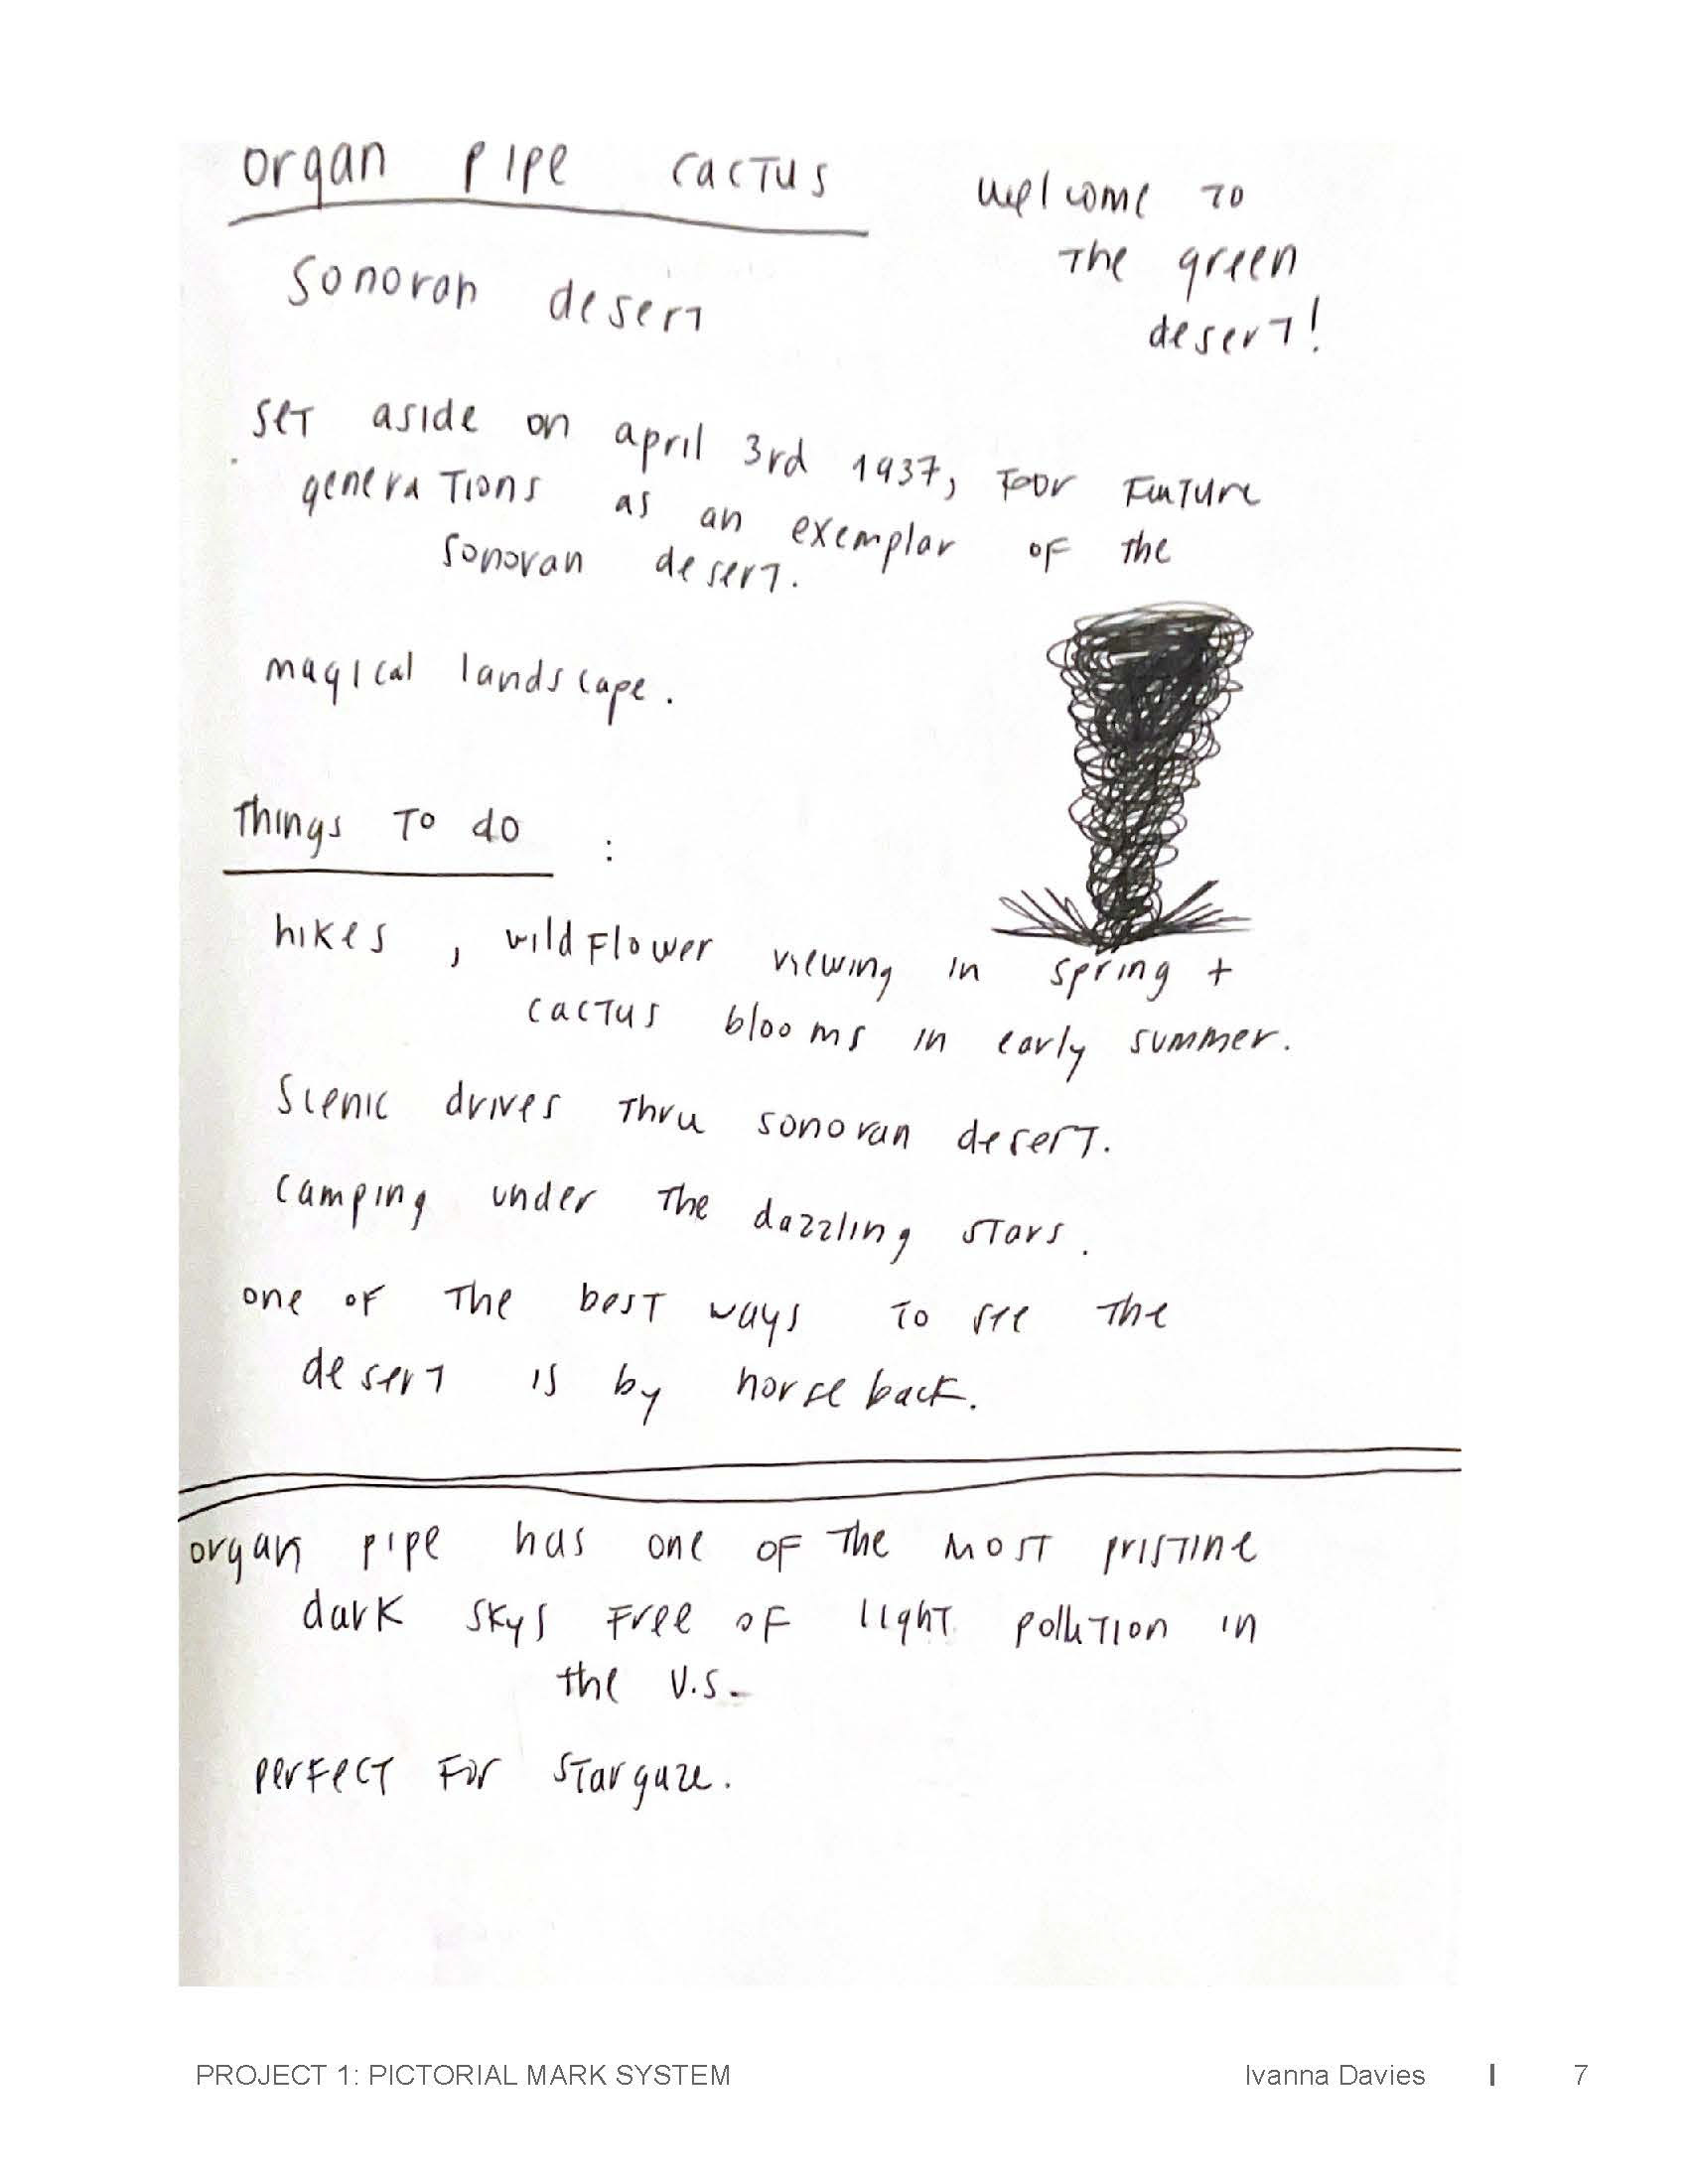 organ pipe cactus
welcome to
the green
desert!
Sonoran desert
set aside on april 3rd 1937, for future
generations as an exemplar of the
sonoran desert.
magical landscape.
things to do :
hikes, wildflower viewing in spring +
cactus blooms in early summer.
Scenic drives thru sonoran desert.
camping under the dazzling stars.
one of the best ways to see the
desert is by horseback.
organ pipe has one of the most pristine
dark skys free of light pollution in
the U.S.
perfect for stargaze.
PROJECT 1: PICTORIAL MARK SYSTEM Ivanna Davies | 7